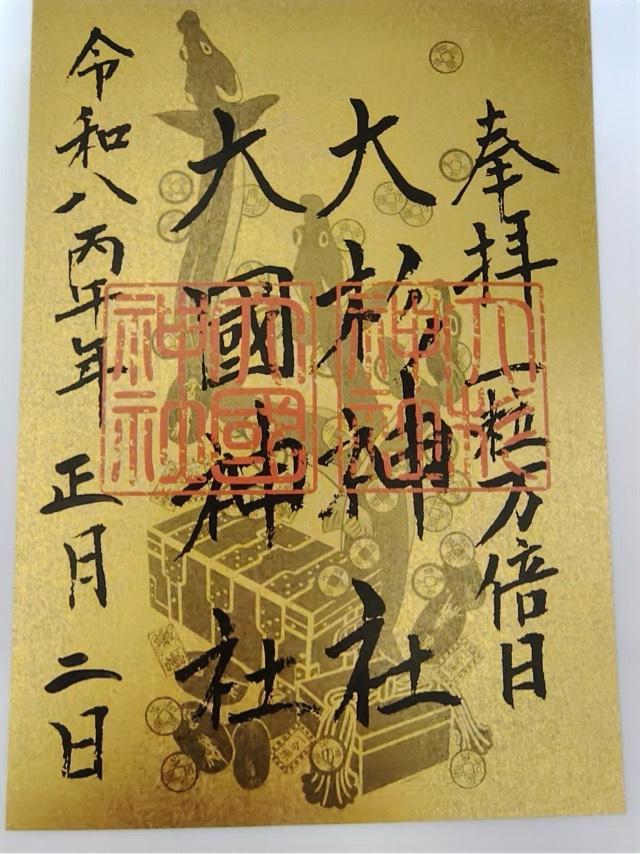 奉拝 一粒万倍日
大杉神社
大國神社
令和八丙午年 正月二日
大杉神社
大國神社